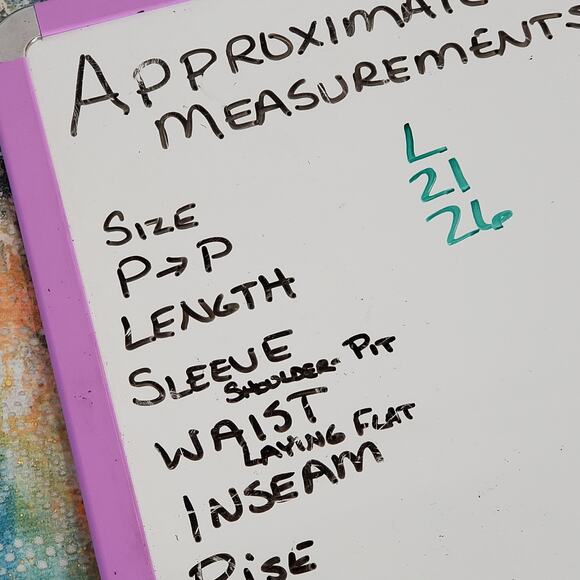 APPROXIMATE
MEASUREMENTS
SIZE L
P→P 21
LENGTH 26
SLEEVE
SHOULDER-PIT
WAIST
LAYING FLAT
INSEAM
RISE